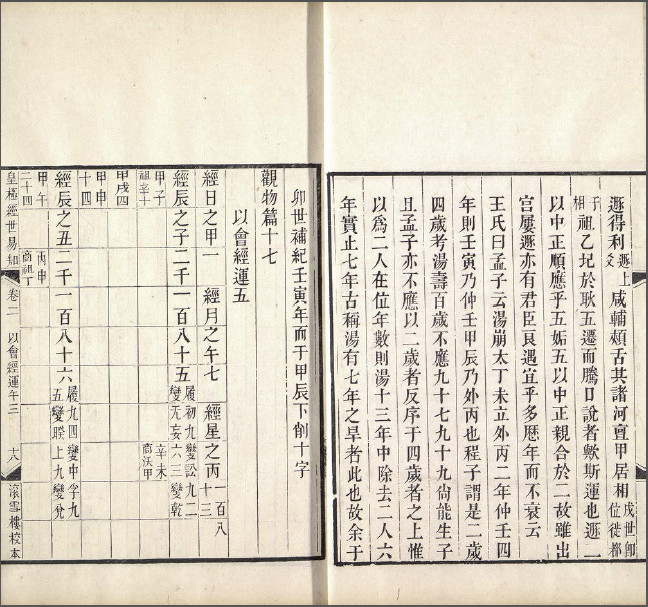 遯得利遯上爻咸輔頰舌其諸河亶甲居相戌世卽位徙都
于相祖乙圮於耿五遷而騰口說者歟斯運也遯一
以中正順應乎五姤五以中正親合於二故雖出
宫屢遯亦有君臣良遇宜乎多歷年而不衰云
王氏曰孟子云湯崩太丁未立外丙二年仲壬四
年則壬寅乃仲壬甲辰乃外丙也程子謂是二歲
四歲考湯壽百歲不應九十七九十九尙能生子
且孟子亦不應以二歲者反序于四歲者之上惟
以爲二人在位年數則湯十三年中除去二人六
年實止七年古稱湯有七年之旱者此也故余于
卯世補紀壬寅年而于甲辰下削十字
觀物篇十七
以會經運五
經日之甲一 經月之午七 經星之丙一百八十三
經辰之子二千一百八十五履初九變訟九二變无妄六三變乾
甲子祖辛十 辛未商沃甲
甲戌四
甲申十四
經辰之丑二千一百八十六履九四變中孚九五變睽上九變兌
甲午二十四 丙申商祖丁
皇極經世易知 卷二 以會經運午三 十八 滾雪樓校本